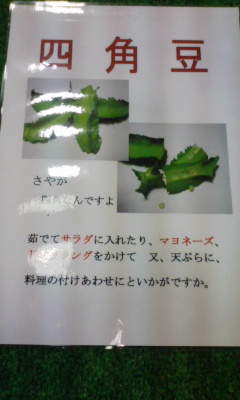 四角豆
さやが
んですよ
茹でてサラダに入れたり、マヨネーズ、
ングをかけて 又、天ぷらに、
料理の付けあわせにといかがですか。